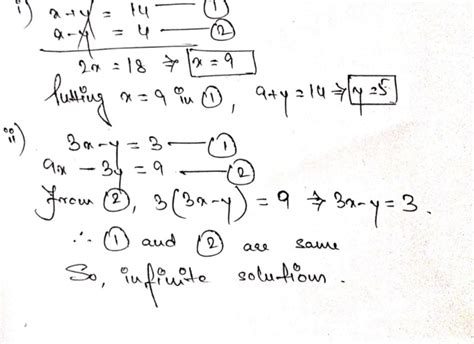 i) x+y = 14 — ①
x-y = 4 — ②
2x = 18 ⇒ x = 9
Putting x = 9 in ①, 9+y = 14 ⇒ y = 5
ii) 3x-y = 3 — ①
9x - 3y = 9 — ②
From ②, 3(3x-y) = 9 ⇒ 3x-y = 3.
∴ ① and ② are same
So, infinite solutions.